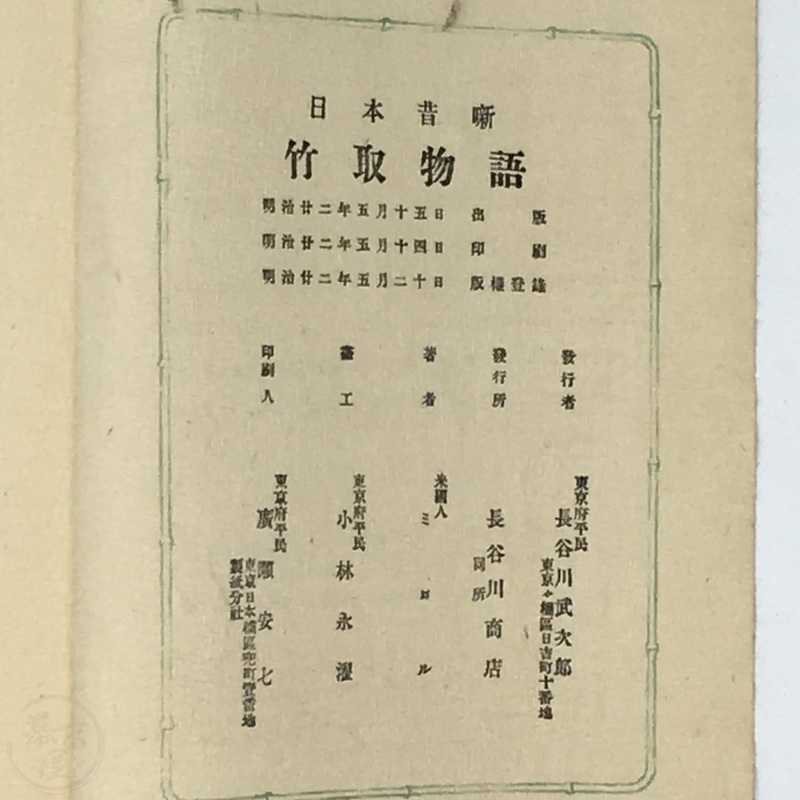 日本昔噺
竹取物語
明治廿二年五月十五日 出版
明治廿二年五月十四日 印刷
明治廿二年五月二十日 版權登錄
發行者
東京府平民
長谷川武次郎
東京々橋區日吉町十番地
發行所
長谷川商店
同所
著者
米國人
ミロル
畫工
東京府平民
小林永濯
印刷人
東京府平民
廣瀬安七
東京日本橋區兜町壹番地
製紙分社